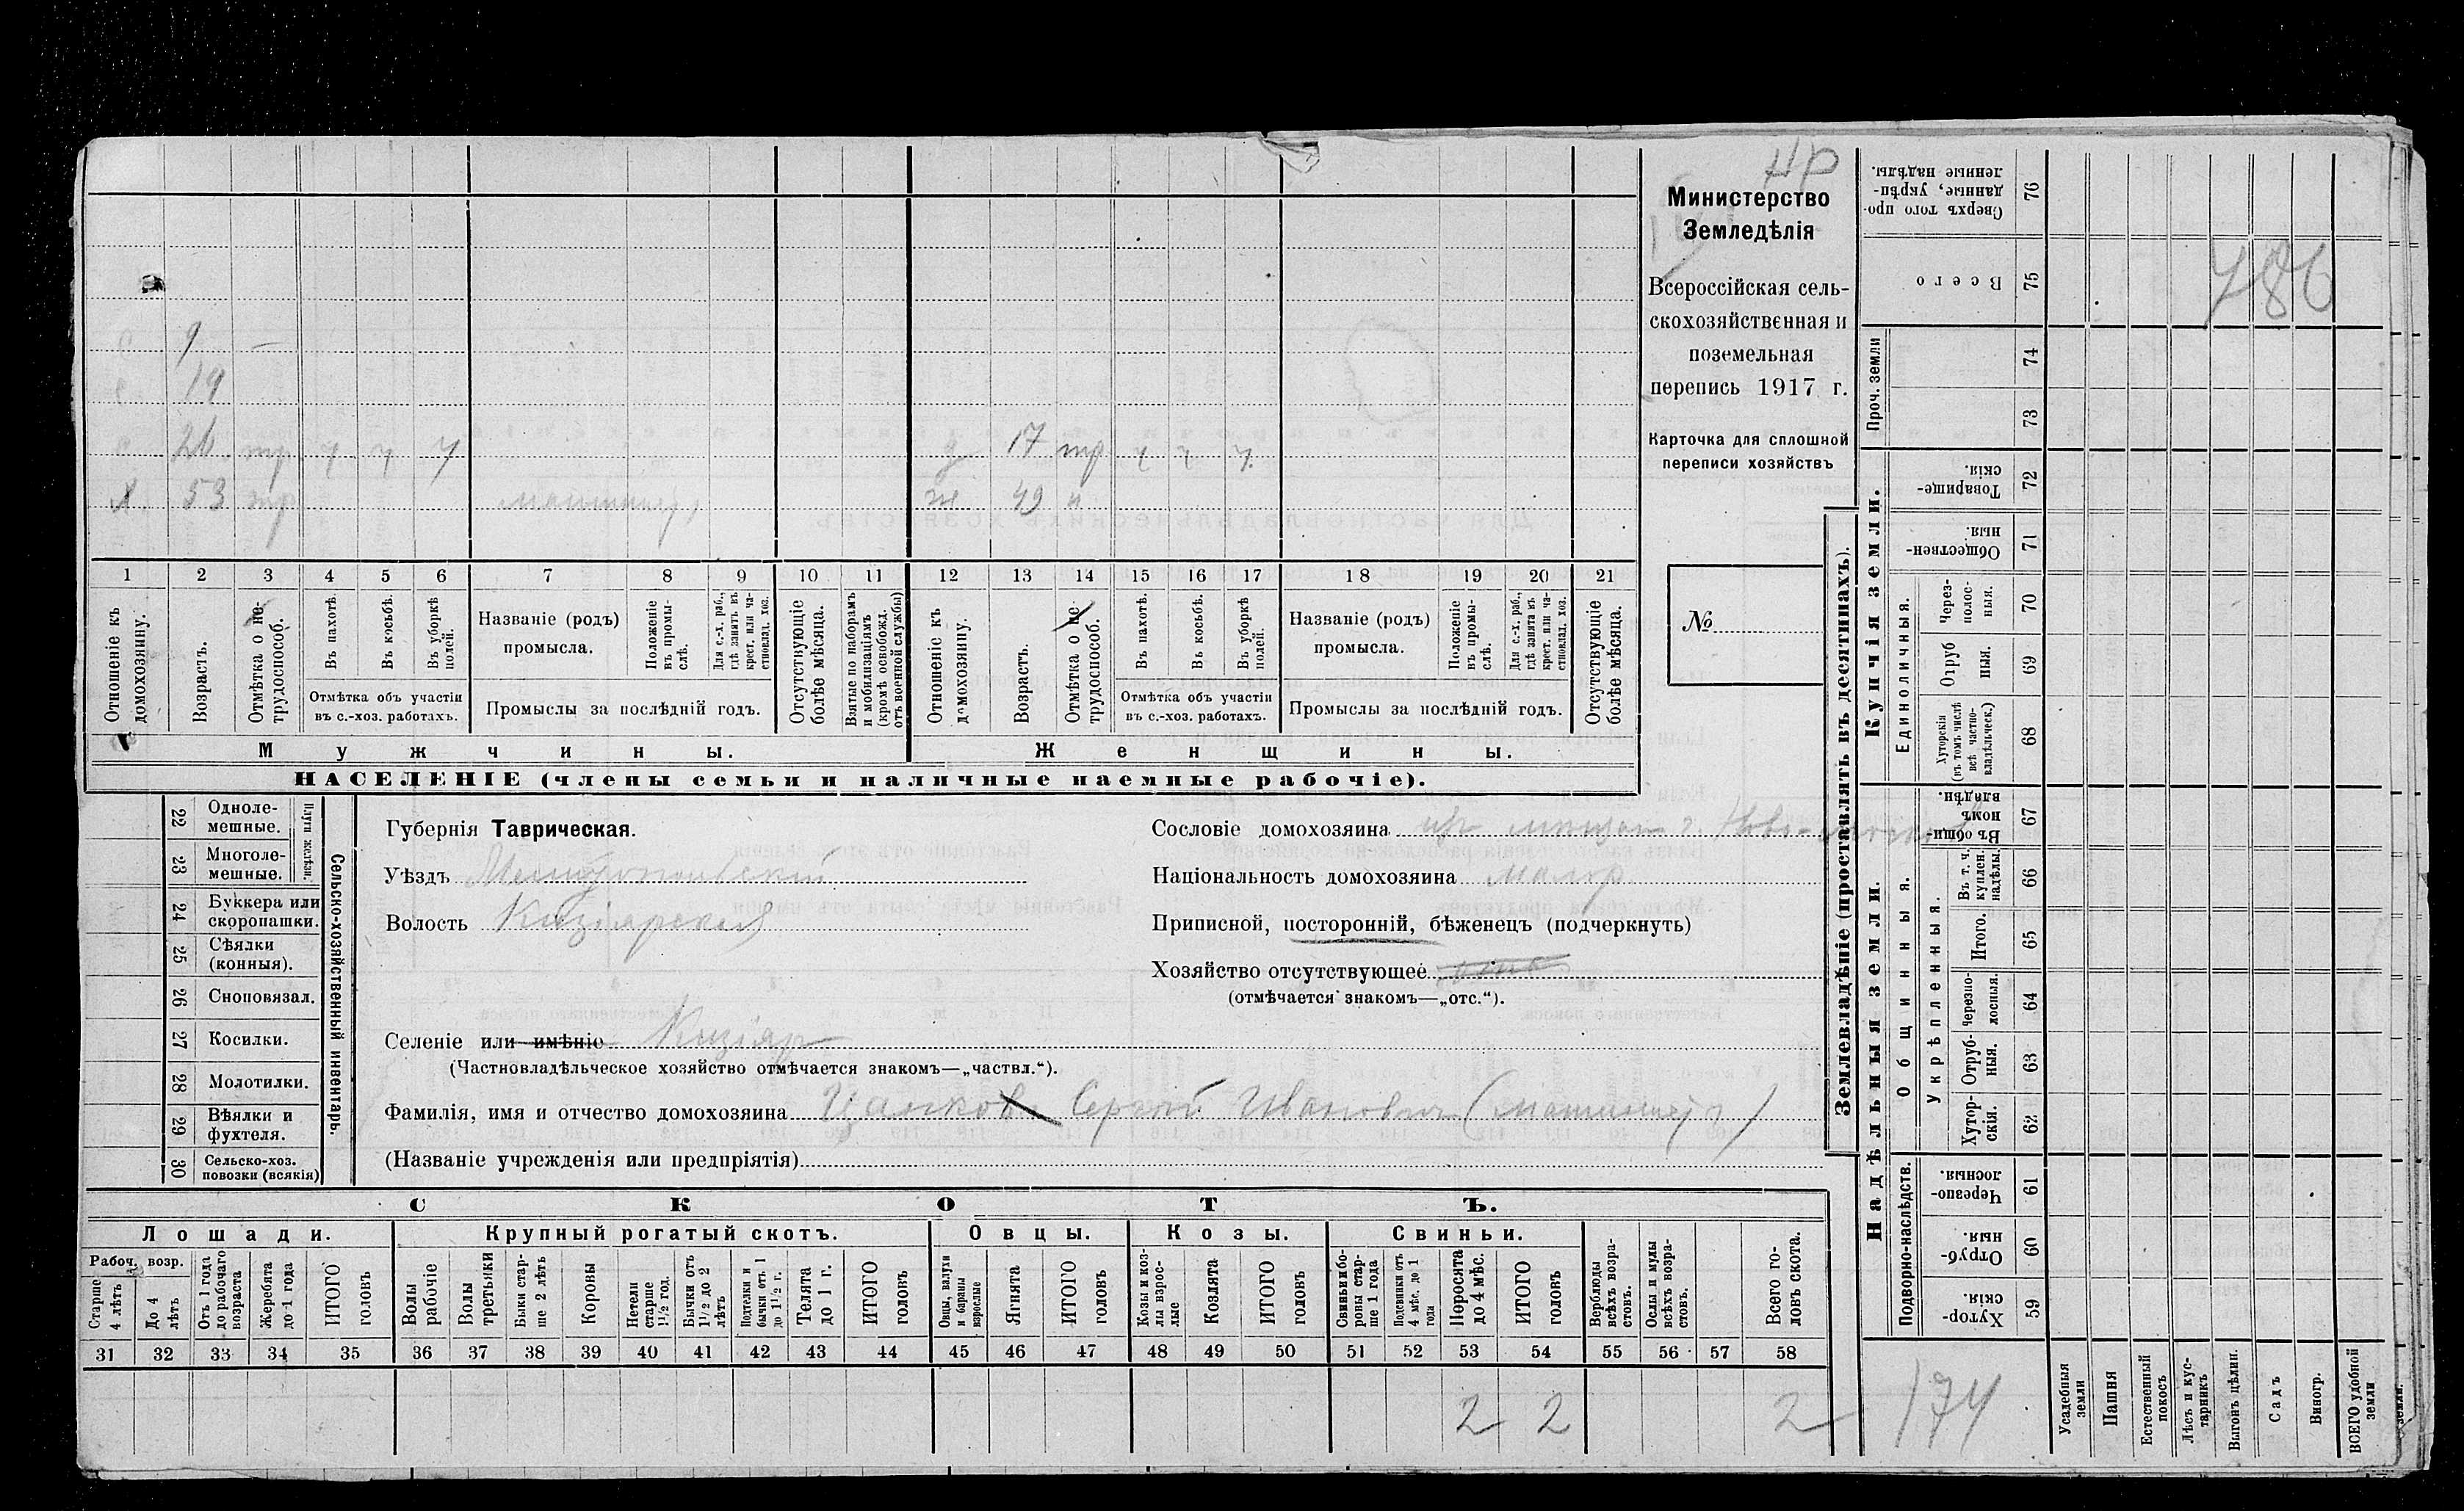 Министерство
Земледѣлія
Всероссійская сель-
скохозяйственная и
поземельная
перепись 1917 г.
Карточка для сплошной
переписи хозяйствъ
№
786
9 —
19
26 тр ч ч ч
17 тр ч ч ч
Х 53 тр
ж 49 н
1 2 3 4 5 6 7 8 9 10 11 12 13 14 15 16 17 18 19 20 21
Отношеніе къ домохозяину.
Возрастъ.
Отмѣтка о не-трудоспособ.
Въ пахотѣ.
Въ косьбѣ.
Въ уборкѣ полей.
Отмѣтка объ участіи въ с.-хоз. работахъ.
Названіе (родъ) промысла.
Положеніе въ промы-слѣ.
Для с.-х. раб., гдѣ занятъ въ крест. или ча-стновлад. хоз.
Промыслы за послѣдній годъ.
Отсутствующіе болѣе мѣсяца.
Взятые по наборамъ и мобилизаціямъ (кромѣ освобожд. отъ военной службы)
Отношеніе къ домохозяину.
Возрастъ.
Отмѣтка о не-трудоспособ.
Въ пахотѣ.
Въ косьбѣ.
Въ уборкѣ полей.
Отмѣтка объ участіи въ с.-хоз. работахъ.
Названіе (родъ) промысла.
Положеніе въ промы-слѣ.
Для с.-х. раб., гдѣ занята въ крест. или ча-стновлад. хоз.
Промыслы за послѣдній годъ.
Отсутствующіе болѣе мѣсяца.
Мужчины.
Женщины.
НАСЕЛЕНІЕ (члены семьи и наличные наемные рабочіе).
22 Одноле-мешные.
23 Многоле-мешные.
Плуги желѣзн.
24 Буккера или скоропашки.
25 Сѣялки (конныя).
26 Сноповязал.
27 Косилки.
28 Молотилки.
29 Вѣялки и фухтеля.
30 Сельско-хоз. повозки (всякія)
Сельско-хозяйственный инвентарь.
Губернія Таврическая.
Уѣздъ Мелитопольскій
Волость Кизіярская
Селеніе или имѣніе Кизіяръ
(Частновладѣльческое хозяйство отмѣчается знакомъ—„частвл.“).
Фамилія, имя и отчество домохозяина Сергѣй Ивановъ
(Названіе учрежденія или предпріятія)
Сословіе домохозяина
Національность домохозяина малор
Приписной, посторонній, бѣженецъ (подчеркнуть)
Хозяйство отсутствующее
(отмѣчается знакомъ—„отс.“).
СКОТЪ.
Лошади.
Крупный рогатый скотъ.
Овцы.
Козы.
Свиньи.
Рабоч. возр.
Старше 4 лѣтъ
До 4 лѣтъ
Отъ 1 года до рабочаго возраста
Жеребята до 1 года
ИТОГО головъ
Волы рабочіе
Волы третьяки
Быки стар-ше 2 лѣтъ
Коровы
Нетели старше 1½ год.
Бычки отъ 1½ до 2 лѣтъ
Подтелки и бычки отъ 1 до 1½ г.
Телята до 1 г.
ИТОГО головъ
Овцы, валухи и бараны взрослые
Ягнята
ИТОГО головъ
Козы и коз-лы взрос-лые
Козлята
ИТОГО головъ
Свиньи и бо-ровы стар-ше 1 года
Подсвинки отъ 4 мѣс. до 1 года
Поросята до 4 мѣс.
ИТОГО головъ
Верблюды всѣхъ возра-стовъ.
Ослы и мулы всѣхъ возра-стовъ.
Всего го-ловъ скота.
31 32 33 34 35 36 37 38 39 40 41 42 43 44 45 46 47 48 49 50 51 52 53 54 55 56 57 58
2 2 2
174
Землевладѣніе (проставлять въ десятинахъ).
Надѣльныя земли.
Купчія земли.
Проч. земли
Подворно-наслѣдств.
Общинныя.
Укрѣпленныя.
Единоличныя.
76 Сверхъ того про-данные, укрѣп-ленные надѣлы.
75 Всего
74
73
72 Товарище-скія.
71 Обществен-ныя.
70 Через-полос-ныя.
69 Отруб ныя.
68 Хуторскія (въ томъ числѣ всѣ частно-владѣльческ.)
67 Въ общин-номъ владѣн.
66 Въ т. ч. куплен. надѣлы.
65 Итого.
64 Черезпо-лосныя.
63 Отруб-ныя.
62 Хутор-скія.
61 Черезпо-лосныя.
60 Отруб-ныя.
59 Хутор-скія.
Усадебныя земли
Пашня
Естественный покосъ
Лѣсъ и кус-тарникъ
Выгонъ цѣлин.
Садъ
Виногр.
ВСЕГО удобной земли